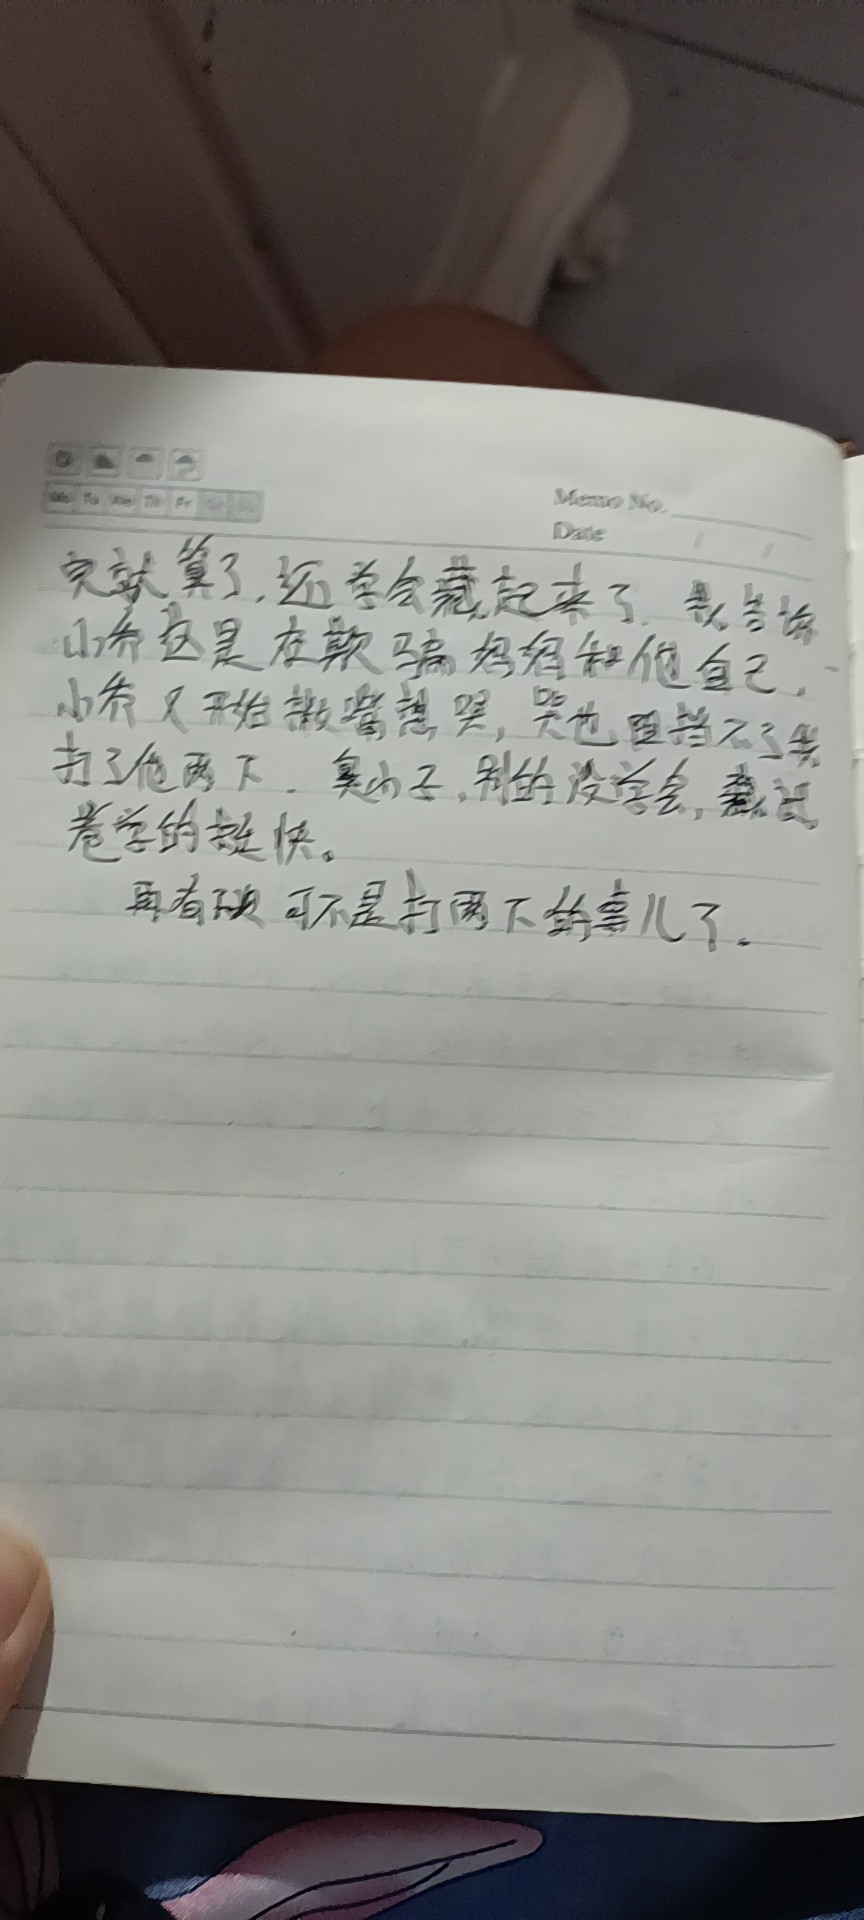 Mo Tu We Th Fr Sa Su
Memo No.
Date / /
完就算了，还学会藏起来了，我告诉
小乔这是在欺骗妈妈和他自己，
小乔又开始撇嘴想哭，哭也阻挡不了我
打了他两下。臭小子，别的没学会，藏试
卷学的挺快。
再有下次可不是打两下的事儿了。